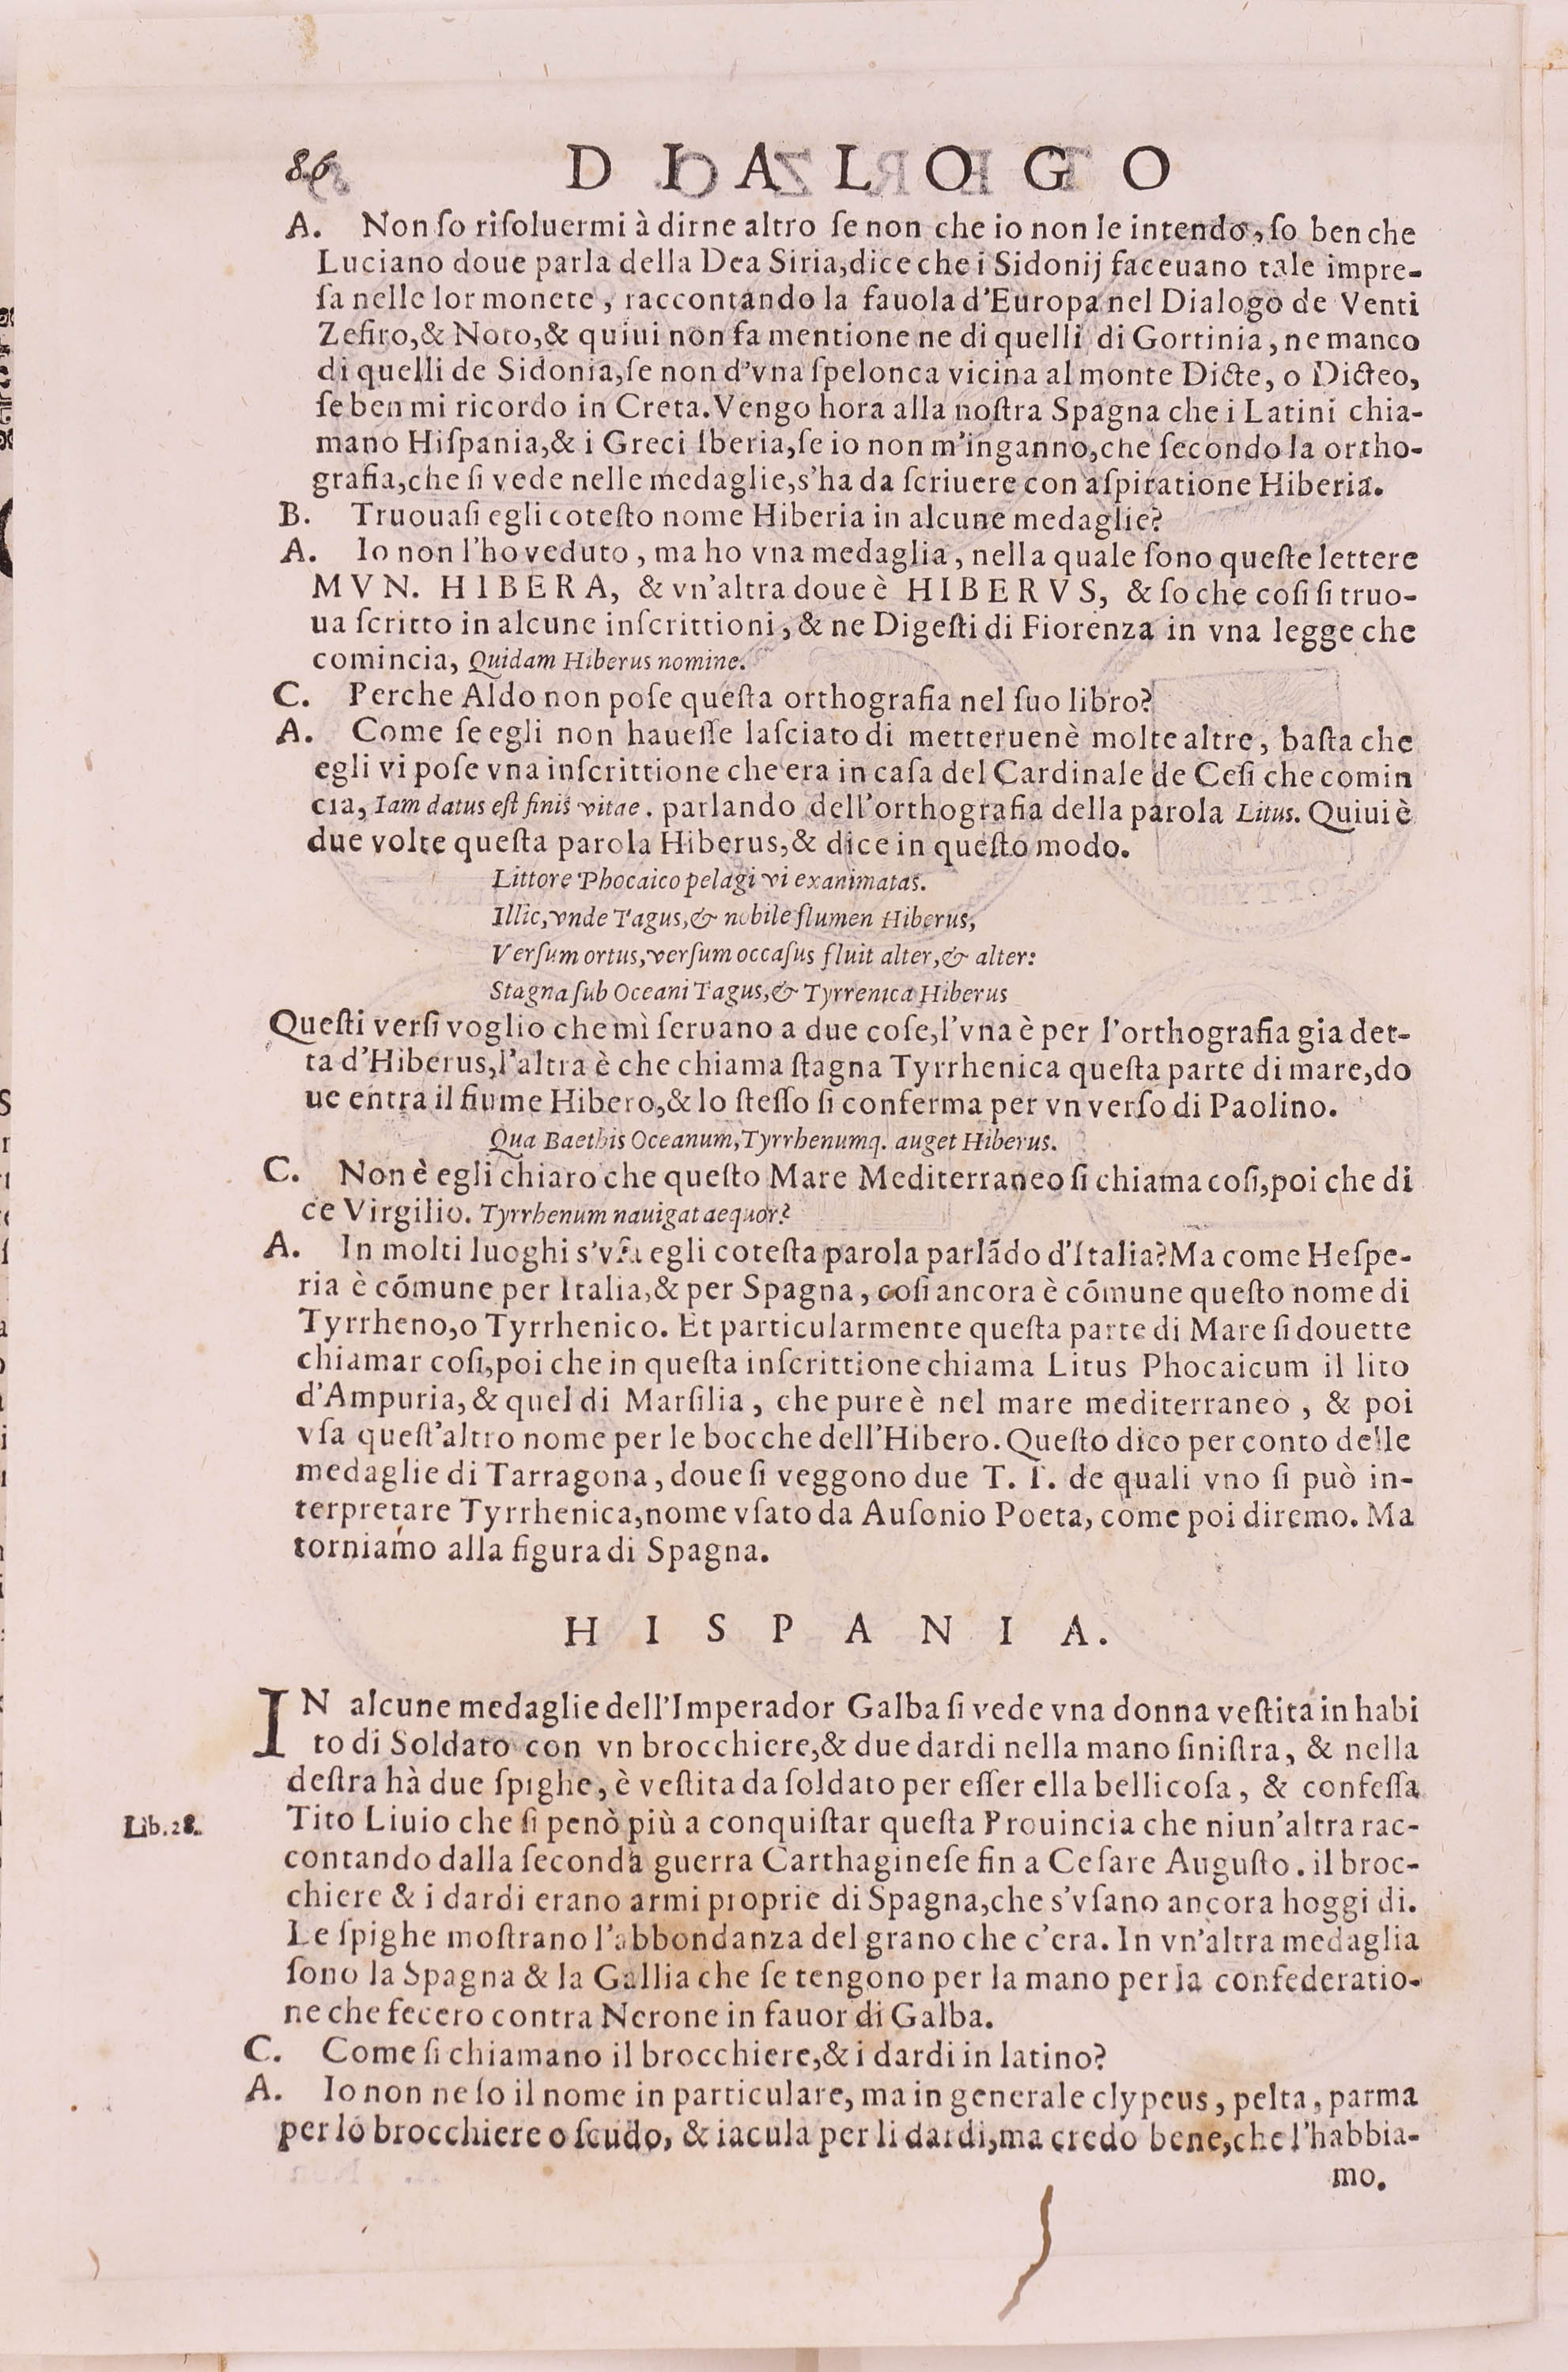 86 DIALOGO
A. Non ſo riſoluermi à dirne altro ſe non che io non le intendo, ſo ben che
Luciano doue parla della Dea Siria, dice che i Sidonij faceuano tale impre-
ſa nelle lor monete, raccontando la fauola d'Europa nel Dialogo de Venti
Zefiro, & Noto, & quiui non fa mentione ne di quelli di Gortinia, ne manco
di quelli de Sidonia, ſe non d'vna ſpelonca vicina al monte Dicte, o Dicteo,
ſe ben mi ricordo in Creta. Vengo hora alla noſtra Spagna che i Latini chia-
mano Hiſpania, & i Greci Iberia, ſe io non m'inganno, che ſecondo la ortho-
grafia, che ſi vede nelle medaglie, s'ha da ſcriuere con aſpiratione Hiberia.
B. Truouaſi egli coteſto nome Hiberia in alcune medaglie?
A. Io non l'ho veduto, ma ho vna medaglia, nella quale ſono queſte lettere
MVN. HIBERA, & vn'altra doue è HIBERVS, & ſo che coſi ſi truo-
ua ſcritto in alcune inſcrittioni, & ne Digeſti di Fiorenza in vna legge che
comincia, Quidam Hiberus nomine.
C. Perche Aldo non poſe queſta orthografia nel ſuo libro?
A. Come ſe egli non haueſſe laſciato di metteruenè molte altre, baſta che
egli vi poſe vna inſcrittione che era in caſa del Cardinale de Ceſi che comin
cia, Iam datus eſt finis vitae. parlando dell'orthografia della parola Litus. Quiui è
due volte queſta parola Hiberus, & dice in queſto modo.
Littore Phocaico pelagi vi exanimatas.
Illic, vnde Tagus, & nobile flumen Hiberus,
Verſum ortus, verſum occaſus fluit alter, & alter:
Stagna ſub Oceani Tagus, & Tyrrenica Hiberus
Queſti verſi voglio che mì ſeruano a due coſe, l'vna è per l'orthografia gia det-
ta d'Hiberus, l'altra è che chiama ſtagna Tyrrhenica queſta parte di mare, do
ue entra il fiume Hibero, & lo ſteſſo ſi conferma per vn verſo di Paolino.
Qua Baethis Oceanum, Tyrrhenumq. auget Hiberus.
C. Non è egli chiaro che queſto Mare Mediterraneo ſi chiama coſi, poi che di
ce Virgilio. Tyrrhenum nauigat aequor?
A. In molti luoghi s'vſa egli coteſta parola parlãdo d'Italia? Ma come Heſpe-
ria è cõmune per Italia, & per Spagna, coſi ancora è cõmune queſto nome di
Tyrrheno, o Tyrrhenico. Et particularmente queſta parte di Mare ſi douette
chiamar coſi, poi che in queſta inſcrittione chiama Litus Phocaicum il lito
d'Ampuria, & quel di Marſilia, che pure è nel mare mediterraneo, & poi
vſa queſt'altro nome per le bocche dell'Hibero. Queſto dico per conto delle
medaglie di Tarragona, doue ſi veggono due T. T. de quali vno ſi può in-
terpretare Tyrrhenica, nome vſato da Auſonio Poeta, come poi diremo. Ma
torniamo alla figura di Spagna.
HISPANIA.
IN alcune medaglie dell'Imperador Galba ſi vede vna donna veſtita in habi
to di Soldato con vn brocchiere, & due dardi nella mano ſiniſtra, & nella
deſtra hà due ſpighe, è veſtita da ſoldato per eſſer ella bellicoſa, & confeſſa
Lib. 28. Tito Liuio che ſi penò più a conquiſtar queſta Prouincia che niun'altra rac-
contando dalla ſeconda guerra Carthagineſe fin a Ceſare Auguſto. il broc-
chiere & i dardi erano armi proprie di Spagna, che s'vſano ancora hoggi di.
Le ſpighe moſtrano l'abbondanza del grano che c'era. In vn'altra medaglia
ſono la Spagna & la Gallia che ſe tengono per la mano per la confederatio-
ne che fecero contra Nerone in fauor di Galba.
C. Come ſi chiamano il brocchiere, & i dardi in latino?
A. Io non ne ſo il nome in particulare, ma in generale clypeus, pelta, parma
per lo brocchiere o ſcudo, & iacula per li dardi, ma credo bene, che l'habbia-
mo.